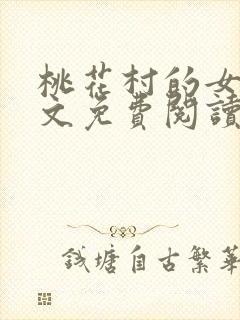 桃花村的女
文免費閱讀
錢塘自古繁華